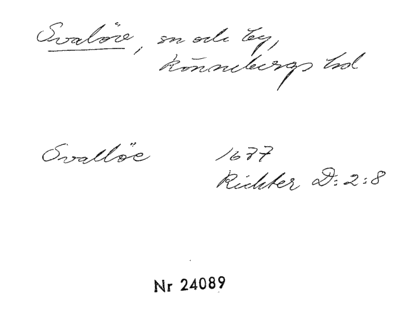 Svalöv, sn och by,
Rönnebergs hd
Svallöe 1677
Richter D:2:8
Nr 24089